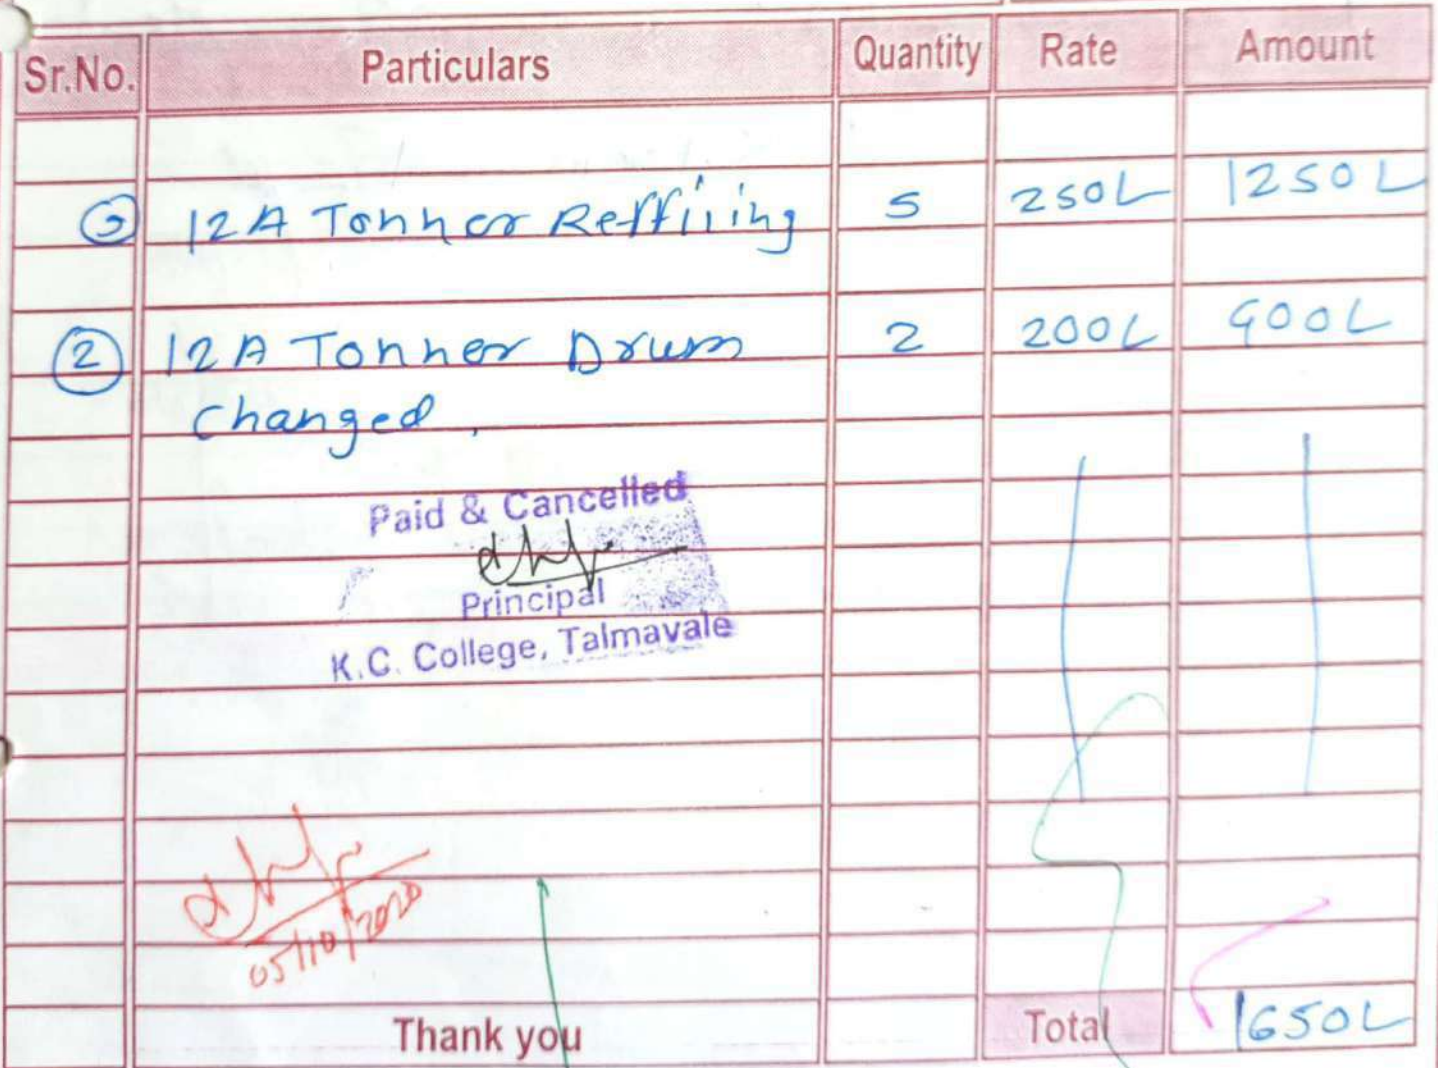 Sr.No. Particulars Quantity Rate Amount
12A Tonner Reffiring 5 250L 1250L
2 12A Tonner Drum 2 200L 400L
changed.
Paid & Cancelled
Principal
K.C. College, Talmavale
05/10/2020
Thank you Total 1650L